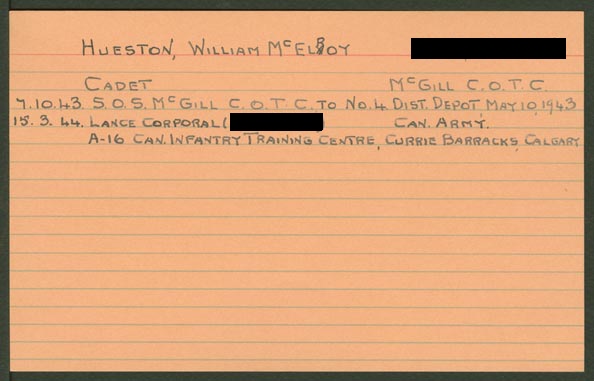 HUESTON, WILLIAM MCELROY
CADET MCGILL C.O.T.C.
7.10.43. S.O.S. MCGILL C.O.T.C. TO NO.4 DIST. DEPOT, MAY 10, 1943
15.3.44. LANCE CORPORAL ( ) CAN. ARMY.
A-16 CAN. INFANTRY TRAINING CENTRE, CURRIE BARRACKS, CALGARY